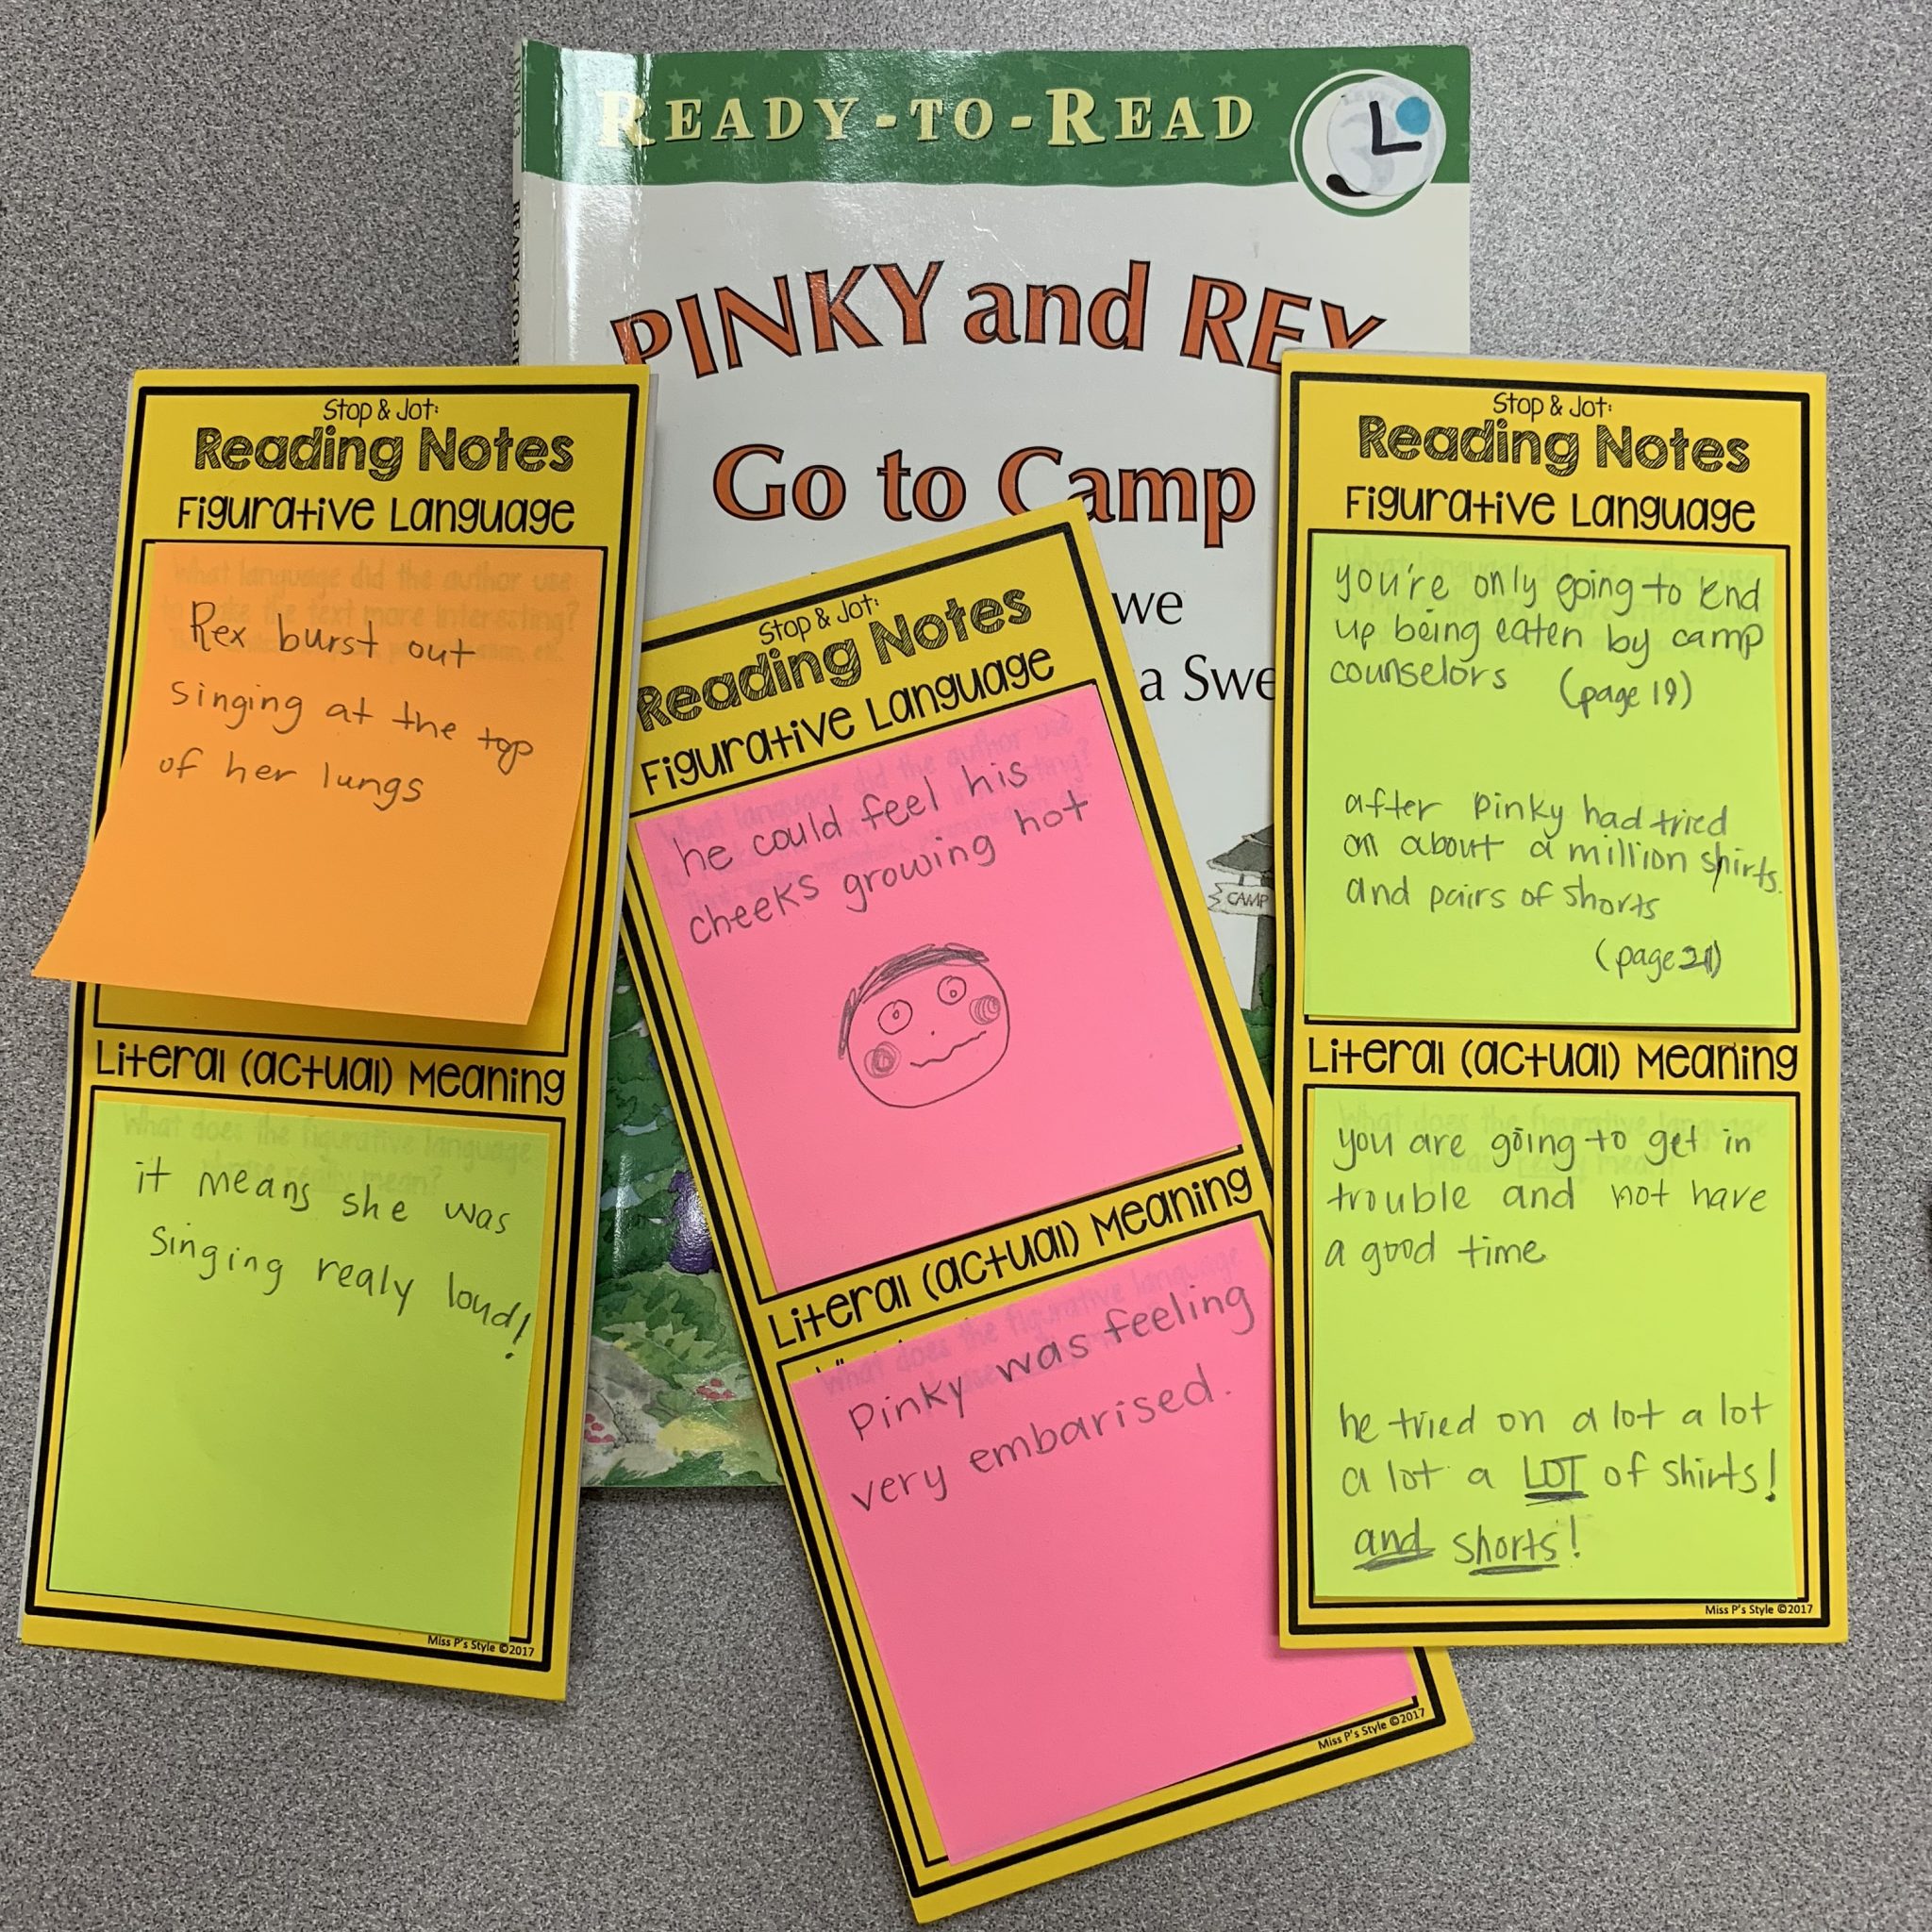 READY-TO-READ
L
READY-TO-R
PINKY and REX
Go to Camp
we
a Swe
CAMP
Stop & Jot:
Reading Notes
Figurative Language
What language did the author use
the text more interesting?
Rex burst out
singing at the top
of her lungs
Literal (actual) Meaning
What does the figurative language
really mean?
it means she was
singing realy loud!
Miss P's Style ©2017
Stop & Jot:
Reading Notes
Figurative Language
What language did the author use
he could feel his
cheeks growing hot
Literal (actual) Meaning
What does the figurative language
Pinky was feeling
very embarised.
Miss P's Style ©2017
Stop & Jot:
Reading Notes
Figurative Language
What language did the author use
you're only going to end
up being eaten by camp
counselors (page 19)
after Pinky had tried
on about a million shirts.
and pairs of shorts
(page 21)
Literal (actual) Meaning
What does the figurative language
phrase really mean?
you are going to get in
trouble and not have
a good time
he tried on a lot a lot
a lot a LOT of shirts!
and shorts!
Miss P's Style ©2017